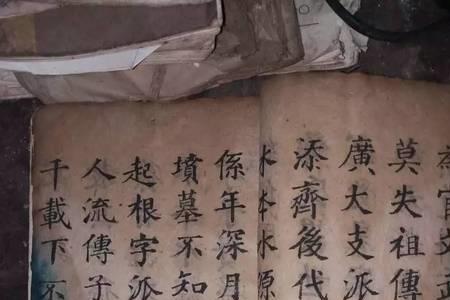 莫失祖傳
廣大支派
添齊後代
木本水源
係年深月
墳墓不知
起根字派
人流傳子
千載下不